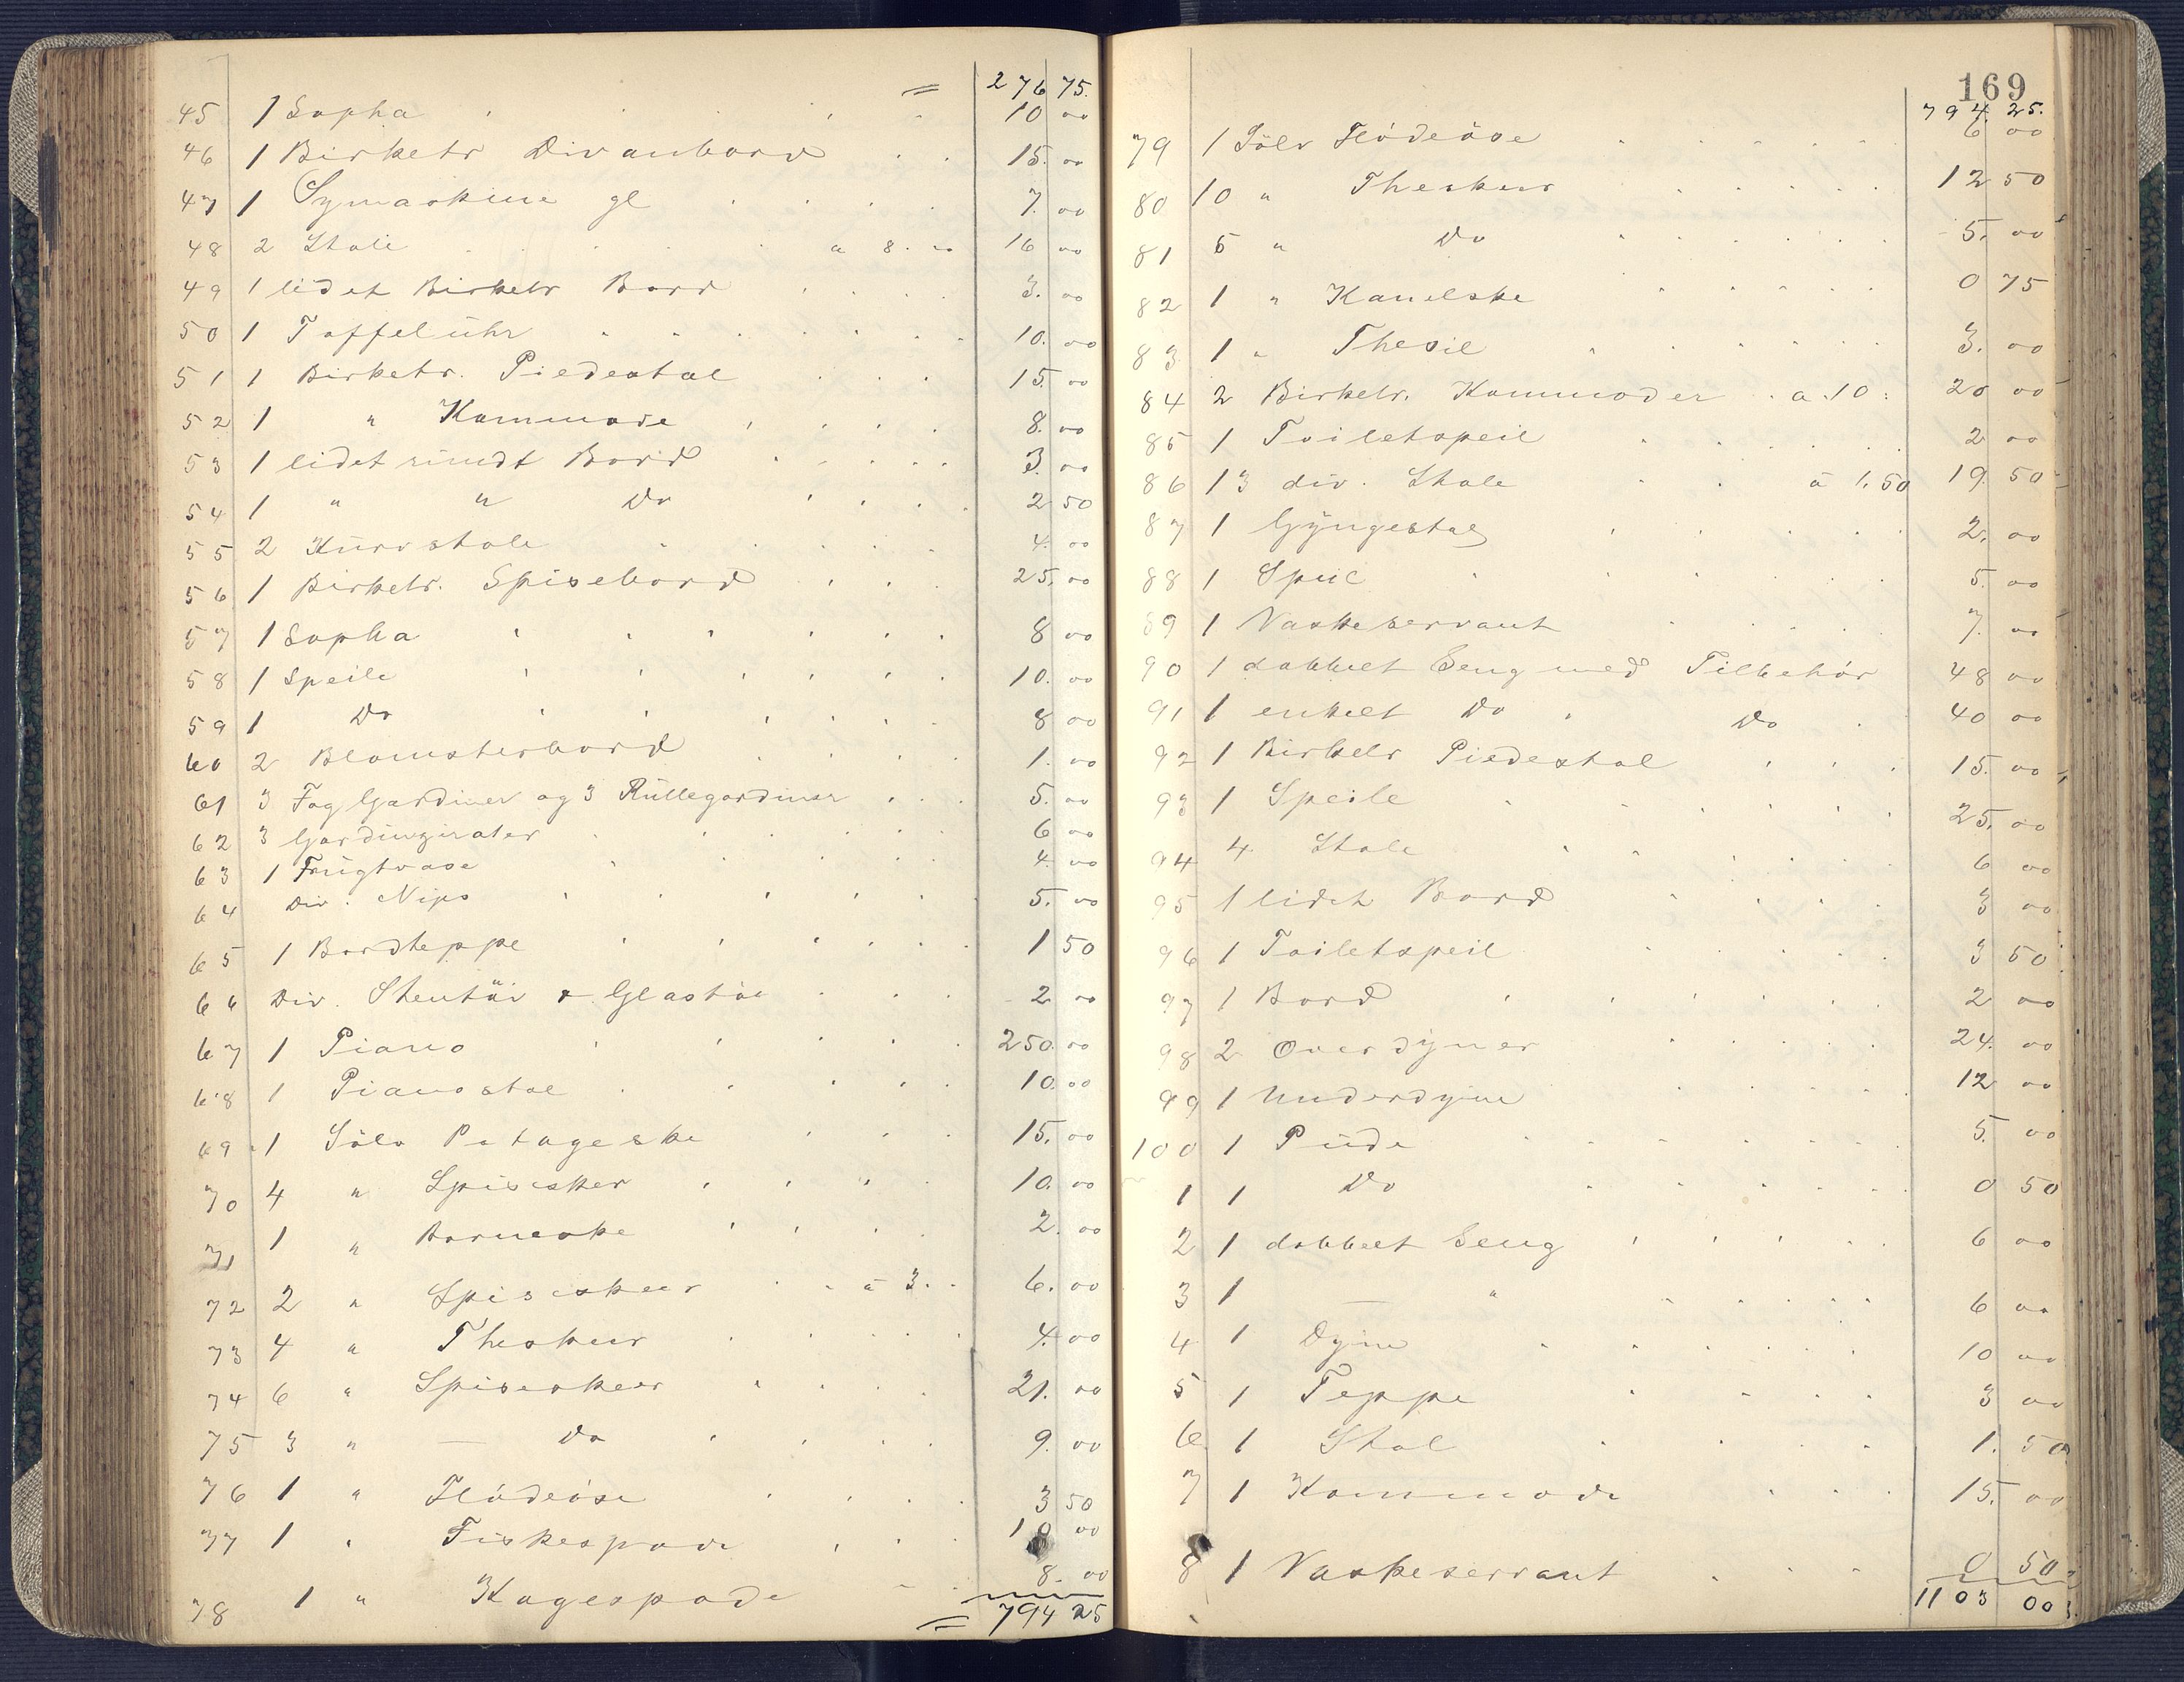 276 75.
45 1 Sopha 10 00
46 1 Birketr Divanbord 15. 00
47 1 Symaskine gl 7. 00
48 2 Stole a 8. 00 16 00
49 1 lidet Birketr Bord 3. 00
50 1 Taffelühr 10. 00
51 1 Birketr. Piedestal 15. 00
52 1 " Kommode 8. 00
53 1 lidet rundt Bord 3. 00
54 1 " " Do 2 50
55 2 Kürvstole 4. 00
56 1 Birketr. Spisebord 25. 00
57 1 Sopha 8 00
58 1 Speile 10. 00
59 1 Do 8 00
60 2 Blomsterbord 1. 00
61 3 Fag Gardiner og 3 Rüllegardiner 5. 00
62 3 Gardinzirater 6 00
63 1 Frügtvase 4. 00
64 Div. Nips 5. 00
65 1 Bordteppe 1 50
66 Div. Stentöi & Glastöi 2 00
67 1 Piano 250. 00
68 1 Pianostol 10. 00
69 1 Sölv Potageske 15. 00
70 4 " Spisesker 10. 00
71 1 " Barneske 2. 00
72 2 " Spiseskeer a 3. 6. 00
73 4 " Theskeer 4. 00
74 6 " Spiseskeer 21. 00
75 3 " — Do 9. 00
76 1 " Flödeöse 3 50
77 1 " Fiskespade 10 00
78 1 " Kagespade 8. 00
= 794 25
169
794. 25.
79 1 Sölv Flödeöse 6 00
80 10 " Theskeer 12 50
81 5 " Do 5. 00
82 1 " Kanelske 0 75
83 1 " Thesil 3. 00
84 2 Birketr. Kommoder a 10: 20 00
85 1 Toiletspeil 2 00
86 13 div. Stole a 1.50 19. 50
87 1 Gÿngestol 2. 00
88 1 Speil 5. 00
89 1 Vaskeservant 7. 00
90 1 dobbelt Seng med Tilbehör 48 00
91 1 enkelt Do " Do 40 00
92 1 Birketr Piedestal 15. 00
93 1 Speile 25. 00
94 4 Stole 6 00
95 1 lidet Bord 3 00
96 1 Toiletspeil 3 50
97 1 Bord 2 00
98 2 Overdÿner 24. 00
99 1 Underdyne 12 00
100 1 Püde 5. 00
1 1 Do 0 50
2 1 dobbelt Seng 6 00
3 1 — " 6 00
4 1 Dyne 10 00
5 1 Teppe 3 00
6 1 Stol 1. 50
7 1 Kommode 15. 00
8 1 Vaskeservant 0 50
1103 00